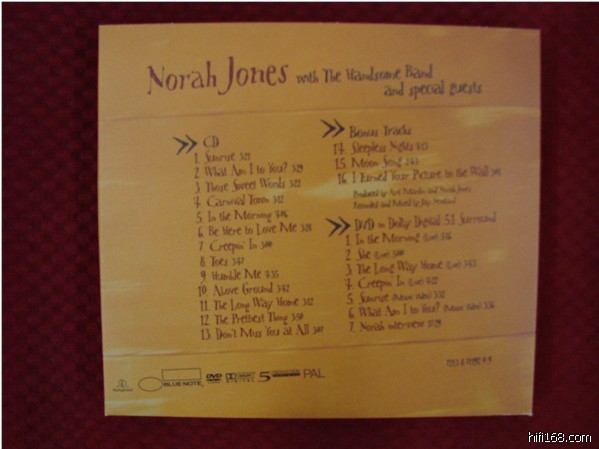 Norah Jones with The Handsome Band
and special guests
CD
1. Sunrise 3:21
2. What Am I to You? 3:29
3. Those Sweet Words 3:22
4. Carnival Town 3:12
5. In the Morning 4:06
6. Be Here to Love Me 3:28
7. Creepin' In 3:00
8. Toes 3:43
9. Humble Me 4:35
10. Above Ground 3:42
11. The Long Way Home 3:12
12. The Prettiest Thing 3:50
13. Don't Miss You at All 3:07
Bonus Tracks
14. Sleepless Nights
15. Moon Song
16. I Turned Your Picture to the Wall
Produced by Arif Mardin and Norah Jones
Recorded and Mixed by Jay Newland
DVD in Dolby Digital 5.1 Surround
1. In the Morning (Live)
2. She (Live)
3. The Long Way Home (Live)
4. Creepin In (Live)
5. Sunrise (Music Video)
6. What Am I to You? (Music Video)
7. Norah interview
BLUE NOTE
DVD
5
PAL
hifi168.com